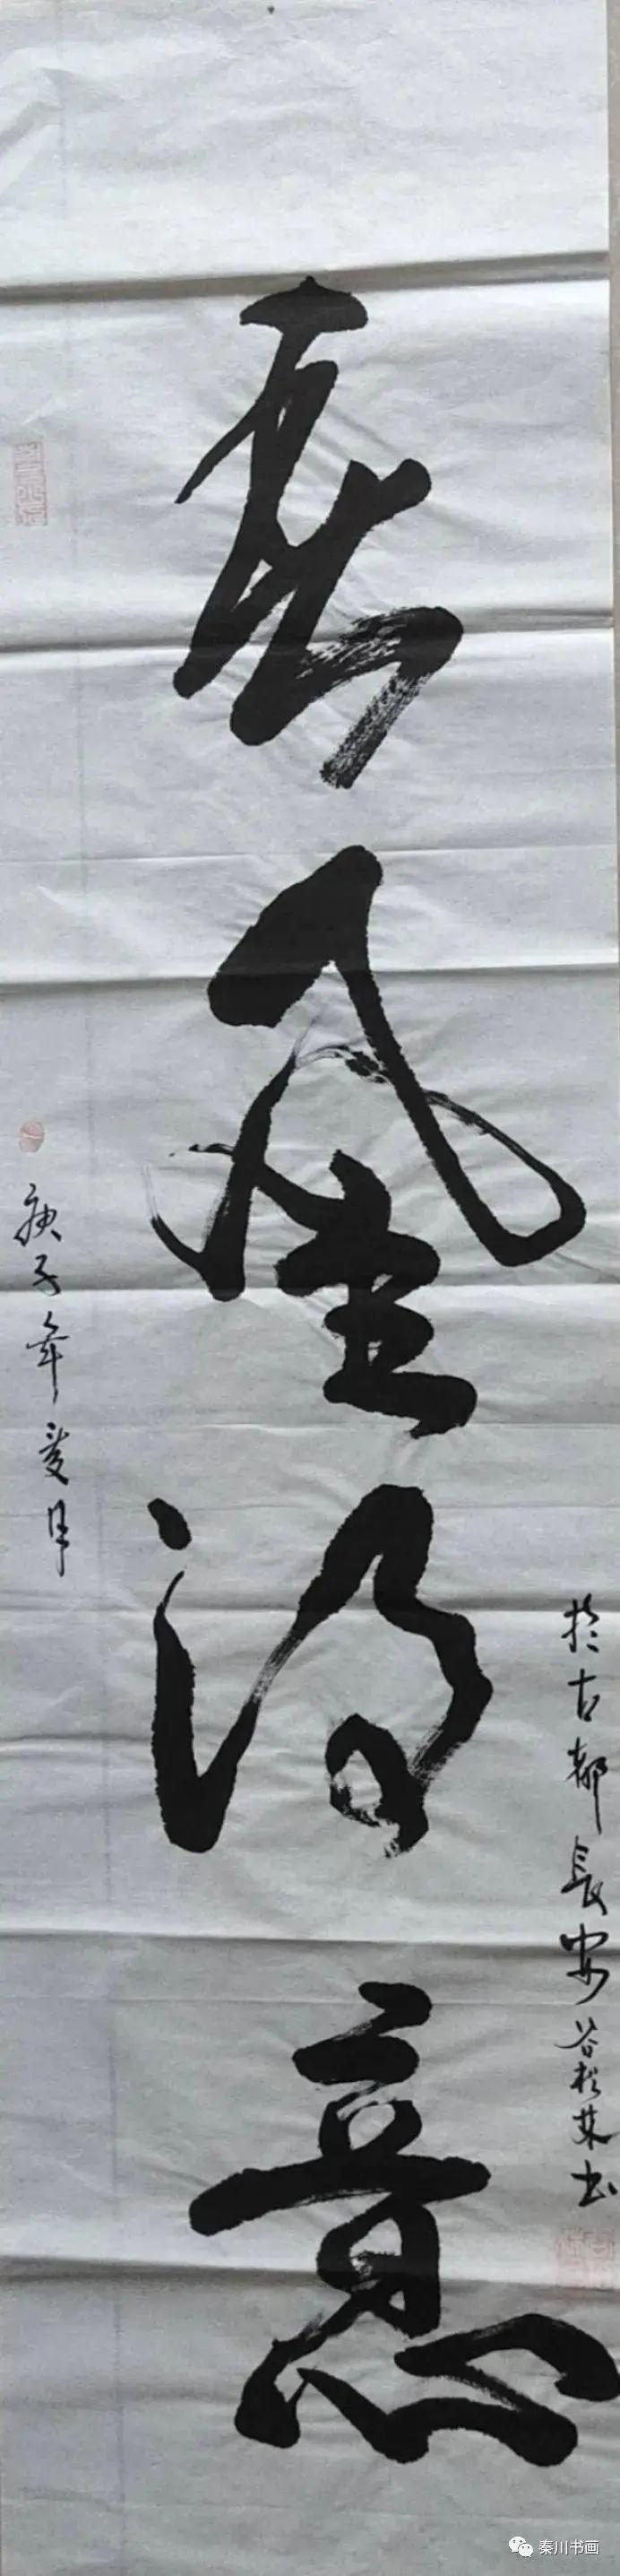 於古都長安谷书
春風得意
庚子年夏月
秦川书画